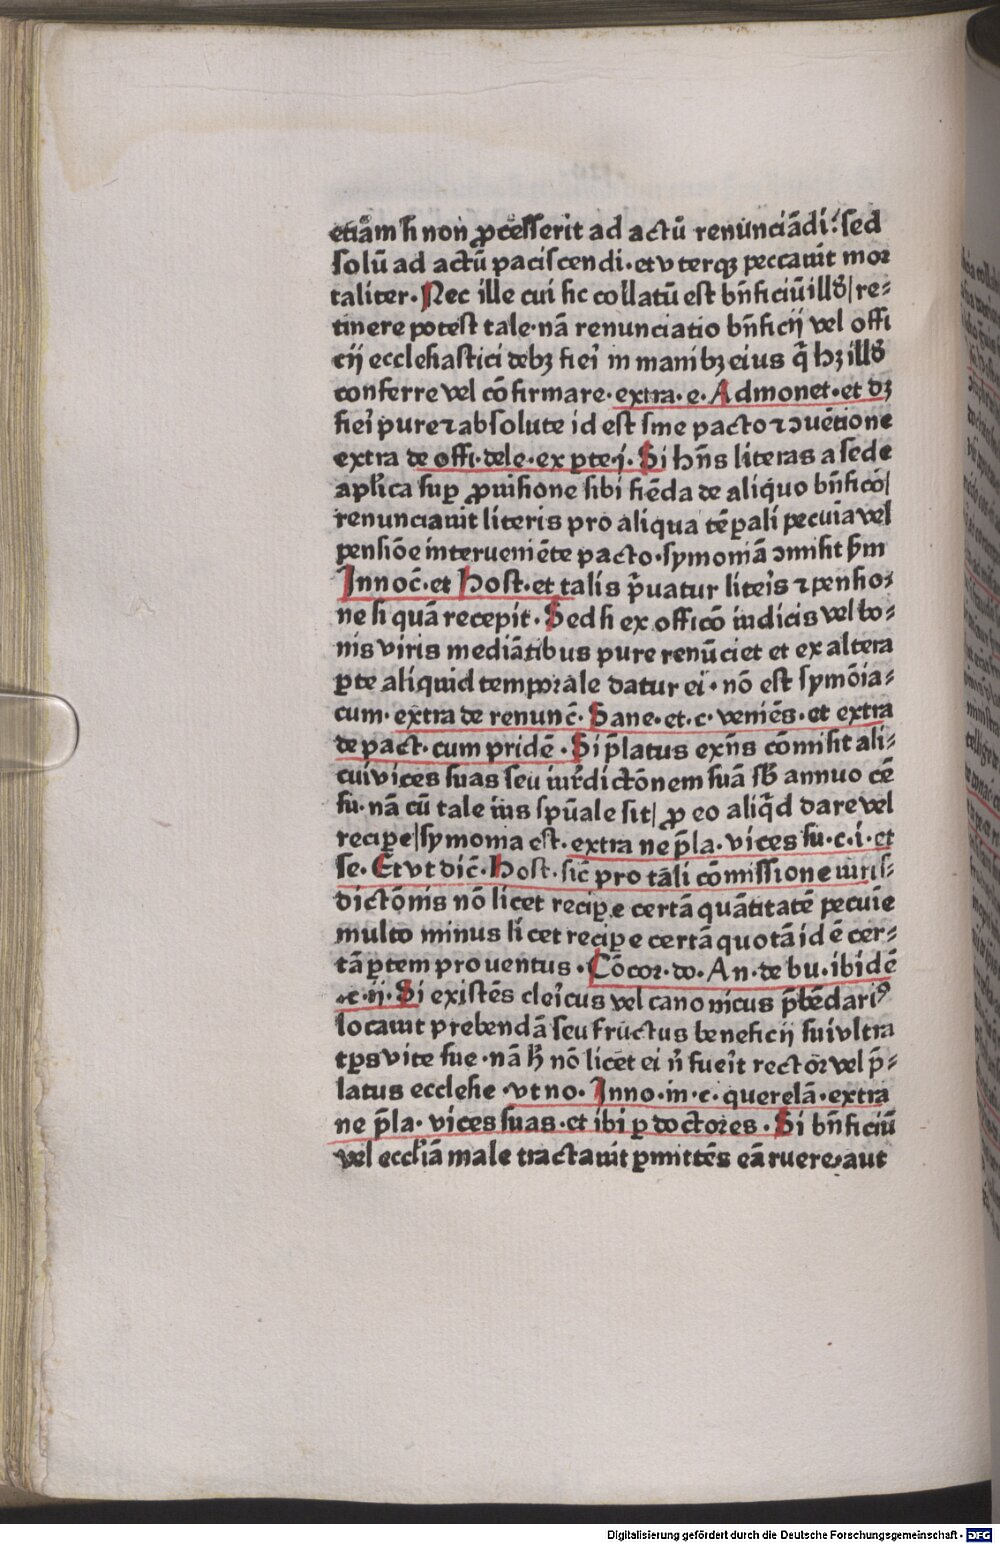 etiam si non ꝓcesserit ad actū renunciādi: sed
solū ad actū paciscendi·et vterqꝫ peccauit moꝛ
taliter·Nec ille cui sic collatū est bn̄ficiū illḋ/re⸗
tinere potest tale·nā renunciatio bn̄ficij vel offi
cij ecclesiastici debꝫ fieri in manibꝫ eius q̄ hꝫ illḋ
conferre vel cōfirmare·extra·e·Admonet·et dꝫ
fieri pure ⁊ absolute id est sine pacto ⁊ ↄuētione
extra de offi·dele·ex ꝑte·j·Si hn̄s literas a sede
aplica suꝑ ꝓuisione sibi fiēda de aliquo bn̄ficō/
renunciauit literis pro aliqua tēꝑali pecuīa vel
pensiōe interueniēte pacto·symoniā ↄmisit ẜm
Innoc̄·et Host·et talis p̄uatur literis ⁊ pensio⸗
ne si quā recepit·Sed si ex officō iudicis vel bo⸗
nis viris mediātibus pure renūciet et ex altera
ꝑte aliquid tempoꝛale datur ei·nō est symōia⸗
cum·extra de renunc̄·Sane·et·c·veniēs·et extra
de pact·cum pridē·Si p̄latus exn̄s cōmisit ali⸗
cui vices suas seu iur̄dictōnem suā sb̄ annuo cē
su·nā cū tale ius spūale sit/ꝓ eo aliq̄d dare vel
reciꝑe/symonia est·extra ne p̄la·vices su·c·i·et
se·Et vt dic̄·Host·sic̄ pro tāli cōmissione iuris⸗
dictōnis nō licet reciꝑe certā quātitatē pecuīe
multo minus licet reciꝑe certā quotā id ē cer⸗
tā ꝑtem prouentus·Cōcoꝛ·do·An·de bu·ibidē
·c·ij·Si existēs clericus vel canonicus p̄bēdariꝰ
locauit prebendā seu fructus beneficij sui vltra
tꝑs vite sue·nā h̄ nō licet ei n̄ fuerit rectoꝛ vel p̄⸗
latus ecclesie·vt no·Inno·in·c·querelā·extra
ne p̄la·vices suas·et ibi ꝑ doctoꝛes·Si bn̄ficiū
vel eccl'iā male tractauit ꝑmittēs eā ruere·aut
Digitalisierung gefördert durch die Deutsche Forschungsgemeinschaft - DFG